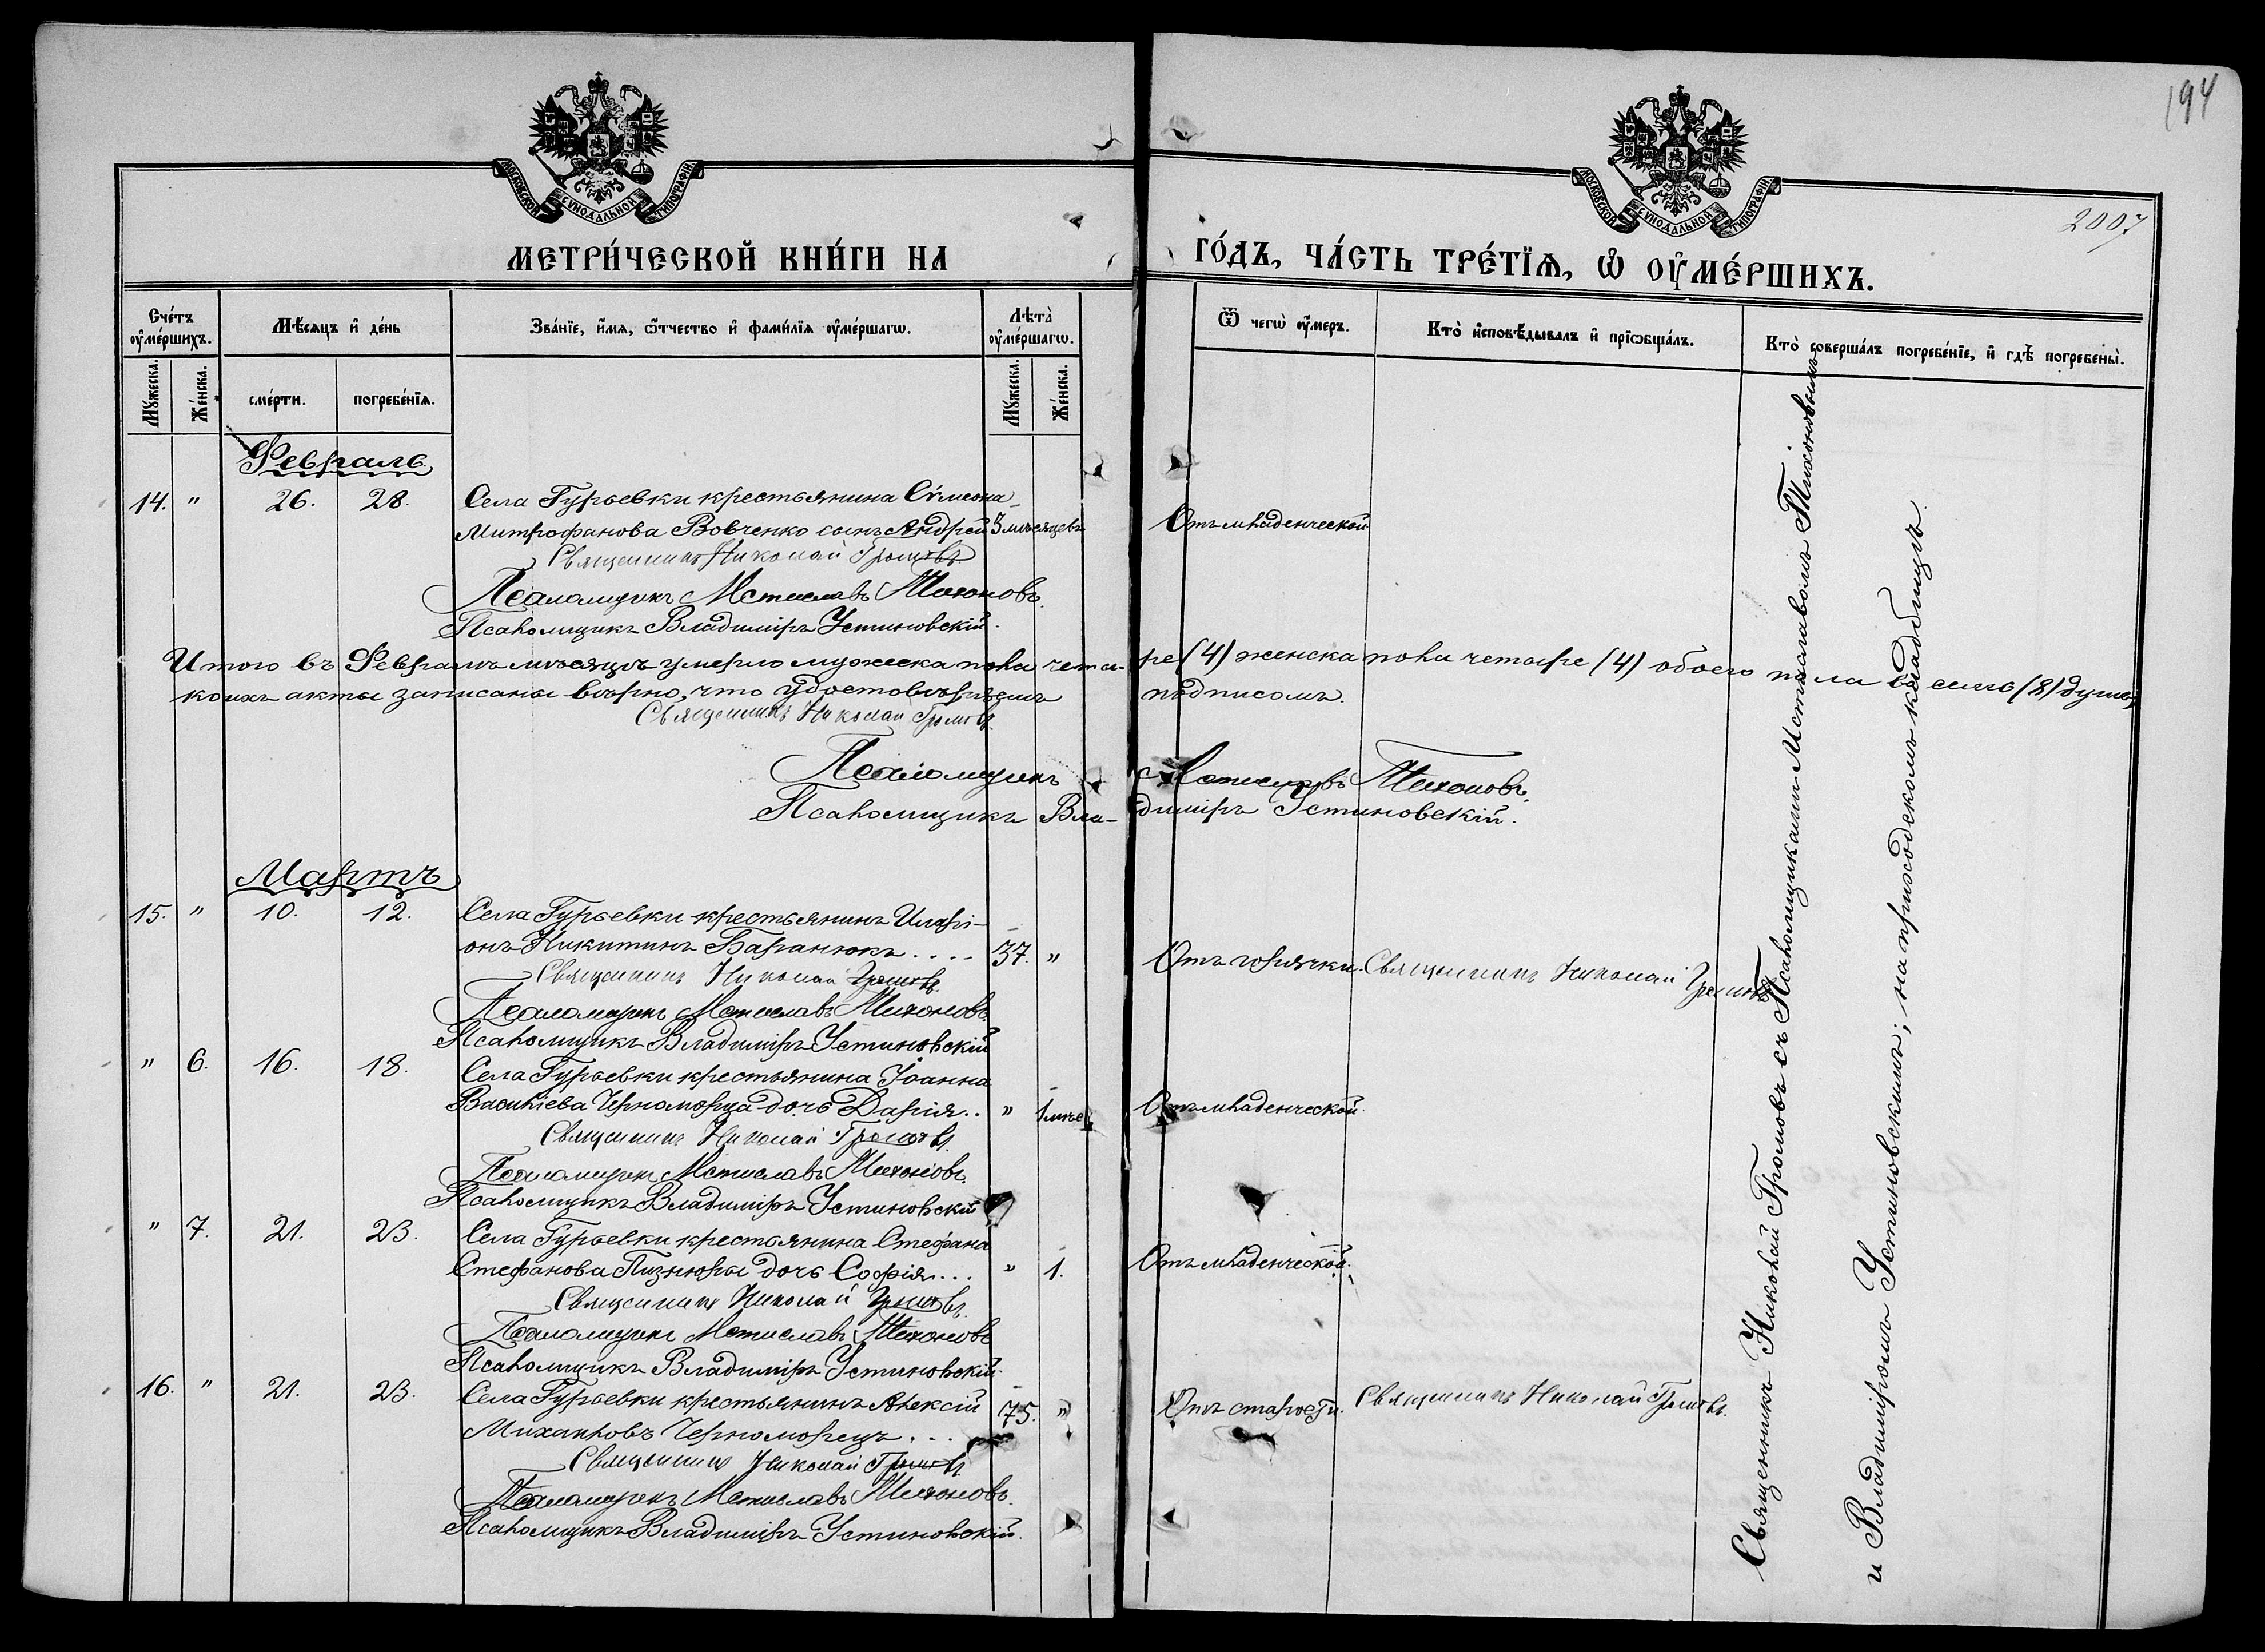 194
2007
МОСКОВСКОЙ СѴНОДАЛЬНОЙ ТИПОГРАФІИ
МОСКОВСКОЙ СѴНОДАЛЬНОЙ ТИПОГРАФІИ
МЕТРИ́ЧЕСКОЙ КНИ́ГИ НА
ГО́ДЪ, ЧА́СТЬ ТРЕ́ТЇѦ, Ѡ҆ ОУ҆МЕ́РШИХЪ.
Сче́тъ оу҆ме́ршихъ.
Мѣ́сѧцъ и҆ де́нь
Зва́нїе, и҆́мѧ, ѻ҆́тчество и҆ фами́лїѧ оу҆ме́ршагѡ.
Лѣта̀ оу҆ме́ршагѡ.
Ѿ чегѡ̀ оу҆́меръ.
Кто̀ и҆сповѣ́дывалъ и҆ прїѡбща́лъ.
Кто̀ соверша́лъ погребе́нїе, и҆ гдѣ̀ погребены̀.
Мꙋ́жеска.
Же́нска.
сме́рти.
погребе́нїѧ.
Мꙋ́жеска.
Же́нска.
Февраль.
14. " 26. 28. Села Гурьевки крестьянина Сѵмеона
Митрофанова Вовченко сынъ Андрей 3 мѣсяцевъ Отъ младенческой
Священникъ Николай Громовъ
Псаломщикъ Мстиславъ Тихоновъ.
Псаломщикъ Владиміръ Устиновскій.
Итого въ Февралѣ мѣсяцѣ умерло мужеска пола четы-ре (4) женска пола четыре (4) обоего пола восемь (8) душъ,
коихъ акты записаны вѣрно, что удостовѣряемъ подписомъ.
Священникъ Николай Громовъ.
Псаломщикъ Мстиславъ Тихоновъ.
Псаломщикъ Вла-диміръ Устиновскій.
Мартъ
15. " 10. 12. Села Гурьевки крестьянинъ Иларі-
онъ Никитинъ Баранюкъ.... 37. " Отъ горячки. Священникъ Николай Громовъ
Священникъ Николай Громовъ.
Псаломщикъ Мстиславъ Тихоновъ.
Псаломщикъ Владиміръ Устиновскій
" 6. 16. 18. Села Гурьевки крестьянина Іоанна
Василіева Черноморца дочь Дарія.. " 1 мѣс. Отъ младенческой.
Священникъ Николай Громовъ.
Псаломщикъ Мстиславъ Тихоновъ.
Псаломщикъ Владиміръ Устиновскій
" 7. 21. 23. Села Гурьевки крестьянина Стефана
Стефанова Пизнюры дочь Софія... " 1. Отъ младенческой.
Священникъ Николай Громовъ.
Псаломщикъ Мстиславъ Тихоновъ
Псаломщикъ Владиміръ Устиновскій.
16. " 21. 23. Села Гурьевки крестьянинъ Алексій 75. " Отъ старости. Священникъ Николай Громовъ.
Михаиловъ Черноморецъ...
Священникъ Николай Громовъ
Псаломщикъ Мстиславъ Тихоновъ.
Псаломщикъ Владиміръ Устиновскій.
Священникъ Николай Громовъ съ Псаломщиками Мстиславомъ Тихоновымъ
и Владиміромъ Устиновскимъ; на приходскомъ кладбищѣ.